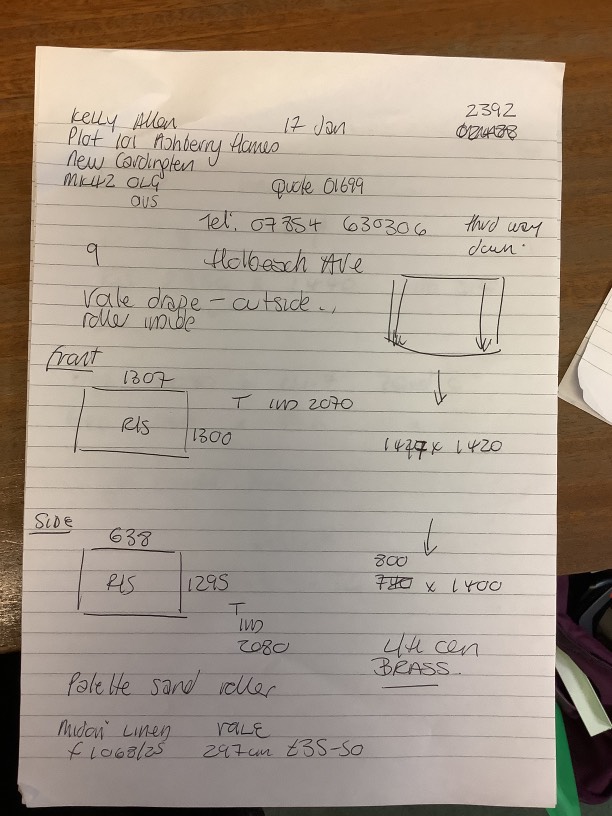 Kelly Allen 17 Jan 2392
Plot 101 Ashberry Homes
New Cardington
MK42 0LG Quote 01699
ous
Tel: 07854 630306 third way
down.
9 Holbeach Ave
Vale drape - outside..
roller inside
Front
1307
T 2070
R/S
1300
1427 x 1420
Side
638
800
R/S 1295
740 x 1400
T
2080
BRASS.
Palette sand roller
Midori Linen VALE
£1068/25 297cm £35-50